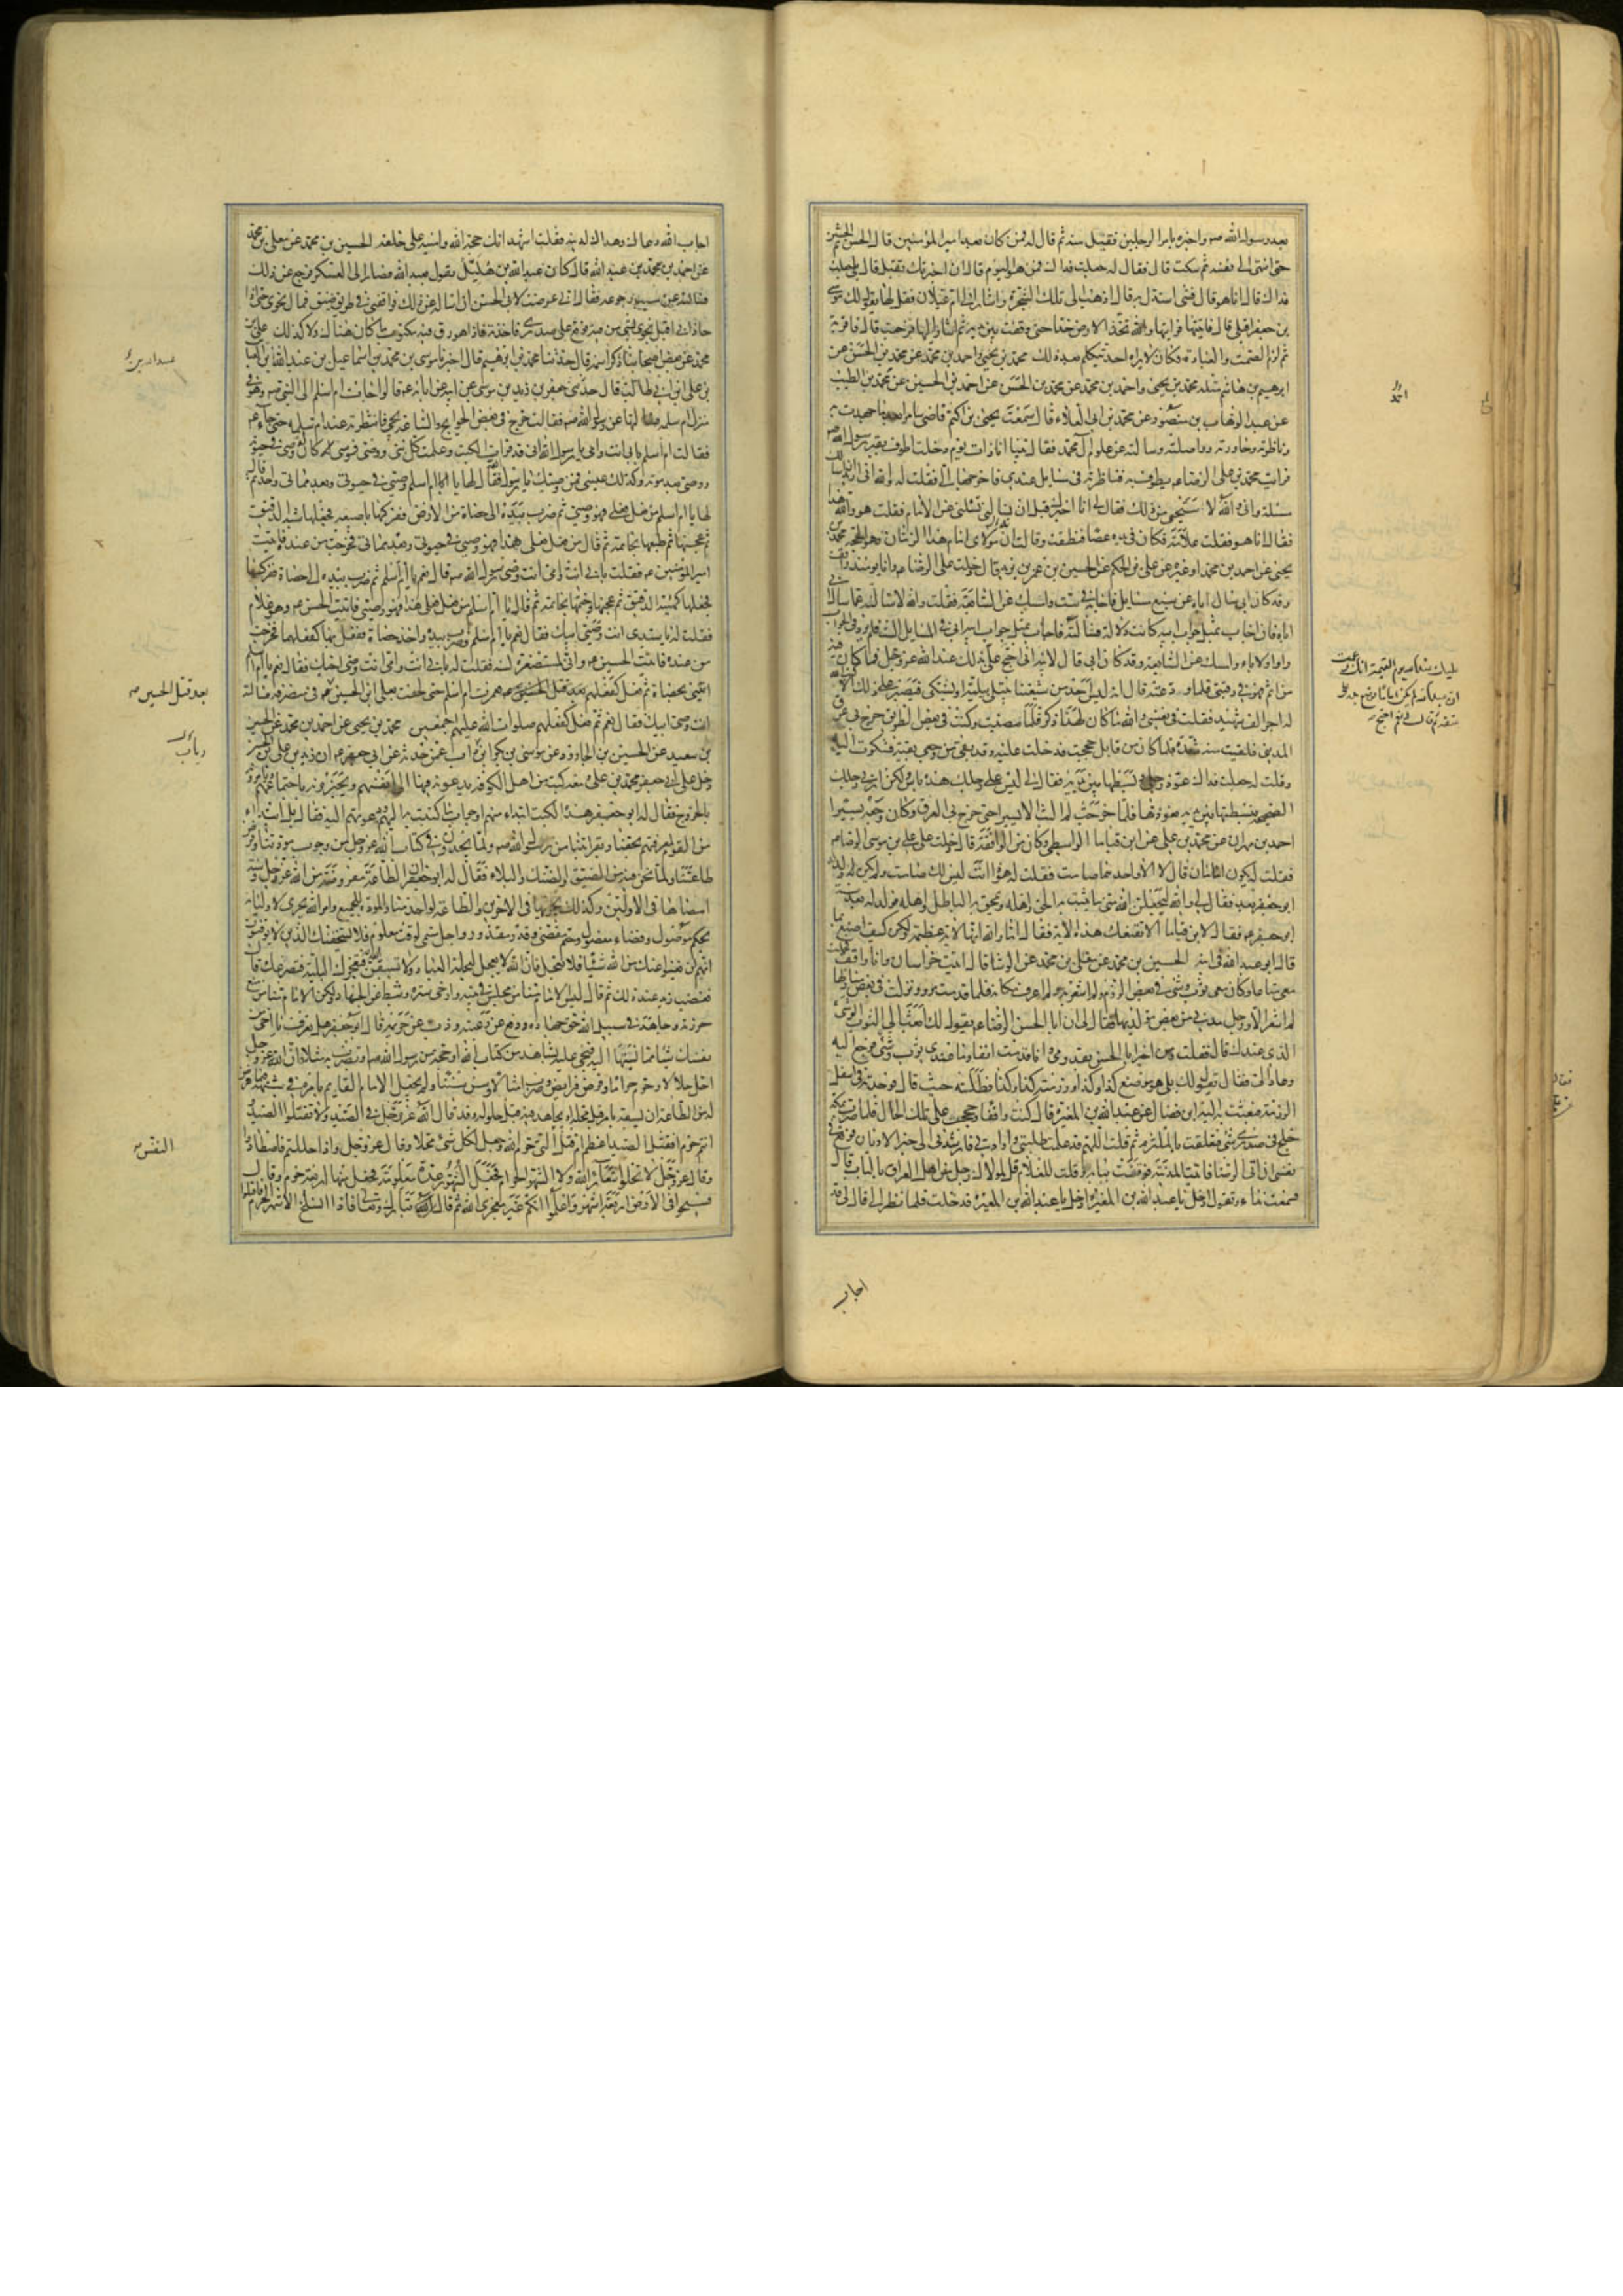 بعد رسول الله صم واخبره بامر الرجلين فقبل منه ثم قال له فمن كان بعد امير المؤمنين قال الحسن ثم الحسين
حتى انتهى الى نفسه ثم سكت قال فقال له جعلت فداك فمن هو اليوم قال ان اخبرتك تقبل قال بلى جعلت
فداك قال انا هو قال فشئ استدل به قال اذهب الى تلك الشجرة واشار الى ام غيلان فقل لها يقول لك موسى
بن جعفر اقبلى قال فاتيتها فرايتها والله تخد الارض خدا حتى وقفت بين يديه ثم اشار اليها فرجعت قال فاقر به
ثم لزم الصمت والعبادة فكان لا يراه احد يتكلم بعد ذلك محمد بن يحيى واحمد بن محمد عن محمد بن الحسن عن
ابرهيم بن هاشم مثله محمد بن يحيى واحمد بن محمد عن محمد بن الحسن عن احمد بن الحسين عن محمد بن الطيب
عن عبد الوهاب بن منصور عن محمد بن ابى العلاء قال سمعت يحيى بن اكثم قاضى سامرا بعد ما جهدت به
وناظرته وحاورته وواصلته وسالته عن علوم آل محمد فقال بينا انا ذات يوم دخلت اطوف بقبر رسول الله صم
فرايت محمد بن على الرضا عم يطوف به فناظرته فى مسايل عندى فاخرجها الى فقلت له والله انى اريد ان اسالك
مسئلة وانى والله لا ستحيى من ذلك فقال لى انا اخبرك قبل ان تسالنى تسئلنى عن الامام فقلت هو والله هذا
فقال انا هو فقلت علامة فكان فى يده عصا فنطقت وقالت ان مولاى امام هذا الزمان وهو الحجة محمد بن
يحيى عن احمد بن محمد او غيره عن على بن الحكم عن الحسين بن عمر بن يزيد قال دخلت على الرضا عم وانا يومئذ واقف
وقد كان ابى سال اباه عن سبع مسايل فاجابه فى ست وامسك عن السابعة فقلت والله لاسالنه عما سال ابى
اباه فان اجاب بمثل جواب ابيه كانت دلالة فسالته فاجاب بمثل جواب ابيه ابى فى المسايل الست فلم يزد فى الجواب
واوا ولا ياء وامسك عن السابعة وقد كان ابى قال لابيه انى احتج عليك عند الله
من اثم فهو فى رقبتى فلما ودعته قال انه ليس احد من شيعتنا يبتلى ببلية او يشتكى فيصبر على ذلك الا كتب الله
له اجر الف شهيد فقلت فى نفسى والله ما كان لهذا ذكر فلما مضيت وكنت فى بعض الطريق خرج بى عرق
المدينى فلقيت منه شدة فلما كان من قابل حججت فدخلت عليه وقد بقى من وجعى بقية فشكوت اليه
وقلت له جعلت فداك عوذ رجلى وبسطتها بين يديه فقال لى ليس على رجلك هذه باس ولكن ارنى رجلك
الصحيحة فبسطتها بين يديه فعوذها فلما خرجت لم البث الا يسيرا حتى خرج بى العرق وكان وجعه يسيرا
احمد بن مهران عن محمد بن على عن ابن قياما الواسطى وكان من الواقفة قال دخلت على على بن موسى الرضا عم
فقلت له يكون امامان قال لا الا واحدهما صامت فقلت له هو ذا انت ليس لك صامت ولم يكن له ولد
ابو جعفر بعد فقال لى والله ليجعلن الله منى ما يثبت به الحق واهله ويمحق به الباطل واهله فولد له بعد سنة
ابو جعفر عم فقال لابن قياما الا تقنعك هذه الاية فقال اما والله انها لاية عظيمة ولكن كيف اصنع بما
قال ابو عبد الله فى ابنه الحسين بن محمد عن معلى بن محمد عن الوشا قال اتيت خراسان وانا واقف
معى متاعا وكان معى ثوب وشى فى بعض الرزم ولم اشعر به ولم اعرف مكانه فلما قدمت مرو ونزلت فى بعض منازلها
لم اشعر الا ورجل مدنى من بعض مولديها فقال لى ان ابا الحسن الرضا عم يقول لك ابعث الى الثوب الوشى
الذى عندك قال فقلت ومن اخبر ابا الحسن بقدومى وانا قدمت انفا وما عندى ثوب وشى فرجع اليه
وعاد الى فقال يقول لك بلى هو فى موضع كذا وكذا ورزمته كذا وكذا فطلبته حيث قال فوجدته فى اسفل
الرزمة فبعثت به اليه ابن فضال عن عبد الله بن المغيرة قال كنت واقفا وحججت على تلك الحال فلما صرت بمكة
خلج فى صدرى شئ فتعلقت بالملتزم ثم قلت اللهم قد علمت طلبتى وارادتى فارشدنى الى خير الاديان فوقع فى
نفسى ان اتى الرضا فاتيت المدينة فوقفت ببابه وقلت للغلام قل لمولاك رجل من اهل العراق بالباب قال
فسمعت نداءه وهو يقول ادخل يا عبد الله بن المغيرة ادخل يا عبد الله بن المغيرة فدخلت فلما نظر الى قال لى قد
اجاب
احمد
اجاب الله دعاك وهداك لدينه فقلت اشهد انك حجة الله وامينه على خلقه الحسين بن محمد عن معلى بن محمد
عن احمد بن محمد بن عبد الله قال كان عبد الله بن هليل يقول بعبد الله فصار الى العسكر فرجع عن ذلك
فسالته عن سبب رجوعه فقال انى عرضت لابى الحسن ان اساله عن ذلك فوافقنى فى طريق ضيق فمال نحوى حتى اذا
حاذانى اقبل نحوى بشئ من فيه فوقع على صدرى فاخذته فاذا هو رق فيه مكتوب ما كان هنالك ولا كذلك على بن
محمد عن بعض اصحابنا ذكر اسمه قال حدثنا محمد بن ابرهيم قال اخبرنا موسى بن محمد بن اسماعيل بن عبيد الله بن العباس
بن على بن ابى طالب قال حدثنى جعفر بن زيد بن موسى عن ابيه عن ابائه عم قالوا جائت ام اسلم الى النبى صم وهو فى
منزل ام سلمة فسالتها عن رسول الله صم فقالت خرج فى بعض الحوايج والساعة يجئ فانتظرته عند ام سلمة حتى جاء عم
فقالت ام اسلم بابى انت وامى يا رسول الله انى قد قرات الكتب وعلمت كل نبى ووصى فموسى كان له وصى فى حيوته
ووصى بعد موته وكذلك عيسى فمن وصيك يا رسول الله فقال لها يا ام اسلم وصيى فى حيوتى وبعد مماتى واحد ثم قال
لها يا ام اسلم من فعل فعلى فهو وصيى ثم ضرب بيده الى حصاة من الارض ففركها باصبعه فجعلها شبه الدقيق
ثم عجنها ثم طبعها بخاتمه ثم قال من فعل فعلى هذا فهو وصيى فى حيوتى وبعد مماتى فخرجت من عنده فاتيت
امير المؤمنين عم فقلت بابى انت وامى انت وصى رسول الله صم قال نعم يا ام اسلم ثم ضرب بيده الى حصاة ففركها
فجعلها كهيئة الدقيق ثم عجنها وختمها بخاتمه ثم قال يا ام اسلم من فعل فعلى هذا فهو وصيى فاتيت الحسن عم وهو غلام
فقلت له يا سيدى انت وصى ابيك فقال نعم يا ام اسلم وضرب بيده واخذ حصاة ففعل بها كفعلهما فخرجت
من عنده فاتيت الحسين عم وانى لمستصغرة لسنه فقلت له بابى انت وامى انت وصى اخيك فقال نعم يا ام اسلم
ايتينى بحصاة ثم فعل كفعلهم فعمرت ام اسلم حتى لحقت بعلى بن الحسين بعد قتل الحسين عم فى منصرفه فسالته
انت وصى ابيك فقال نعم ثم فعل كفعلهم صلوات الله عليهم اجمعين محمد بن يحيى عن احمد بن محمد عن الحسين
بن سعيد عن الحسين بن الجارود عن موسى بن بكر بن داب عمن حدثه عن ابى جعفر عم ان زيد بن على بن الحسين
دخل على ابى جعفر محمد بن على ومعه كتب من اهل الكوفة يدعونه فيها الى انفسهم ويخبرونه باجتماعهم ويامرونه
بالخروج فقال له ابو جعفر هذه الكتب ابتداء منهم او جواب ما كتبت به اليهم ودعوتهم اليه فقال بل ابتداء
من القوم لمعرفتهم بحقنا وبقرابتنا من رسول الله صم ولما يجدون فى كتاب الله عز وجل من وجوب مودتنا وفرض
طاعتنا ولما نحن فيه من الضيق والضنك والبلاء فقال له ابو جعفر ان الطاعة مفروضة من الله عز وجل وسنة
امضاها فى الاولين وكذلك يجريها فى الاخرين والطاعة لواحد منا والمودة للجميع وامر الله يجرى لاوليائه
بحكم موصول وقضاء مفصول وحتم مقضى وقدر مقدور واجل مسمى لوقت معلوم فلا يستخفنك الذين لا يوقنون
انهم لن يغنوا عنك من الله شيئا فلا تعجل فان الله لا يعجل لعجلة العباد ولا تسبقن الله فتعجزك البلية فتصرعك قال
فغضب زيد عند ذلك ثم قال ليس الامام منا من جلس فى بيته وارخى ستره وثبط عن الجهاد ولكن الامام منا من منع
حوزته وجاهد فى سبيل الله حق جهاده ودفع عن رعيته وذب عن حريمه قال ابو جعفر هل تعرف يا اخى من
نفسك شيئا مما نسبتها اليه فتجئ عليه بشاهد من كتاب الله او حجة من رسول الله صم او تضرب به مثلا فان الله عز وجل
احل حلالا وحرم حراما وفرض فرايض وضرب امثالا وسن سننا ولم يجعل الامام القايم بامره فى شبهة فيما فرض
له من الطاعة ان يسبقه بامر قبل محله او يجاهد فيه قبل حلوله وقد قال الله عز وجل فى الصيد ولا تقتلوا الصيد
وانتم حرم افقتل الصيد اعظم ام قتل النفس التى حرم الله وجعل لكل شئ محلا وقال عز وجل واذا حللتم فاصطادوا
وقال عز وجل لا تحلوا شعائر الله ولا الشهر الحرام فجعل الشهور عدة معلومة فجعل منها اربعة حرما وقال
فسيحوا فى الارض اربعة اشهر واعلموا انكم غير معجزى الله ثم قال تبارك وتعالى فاذا انسلخ الاشهر الحرم فاقتلوا
بعد قتل الحسين صم
النفس صم